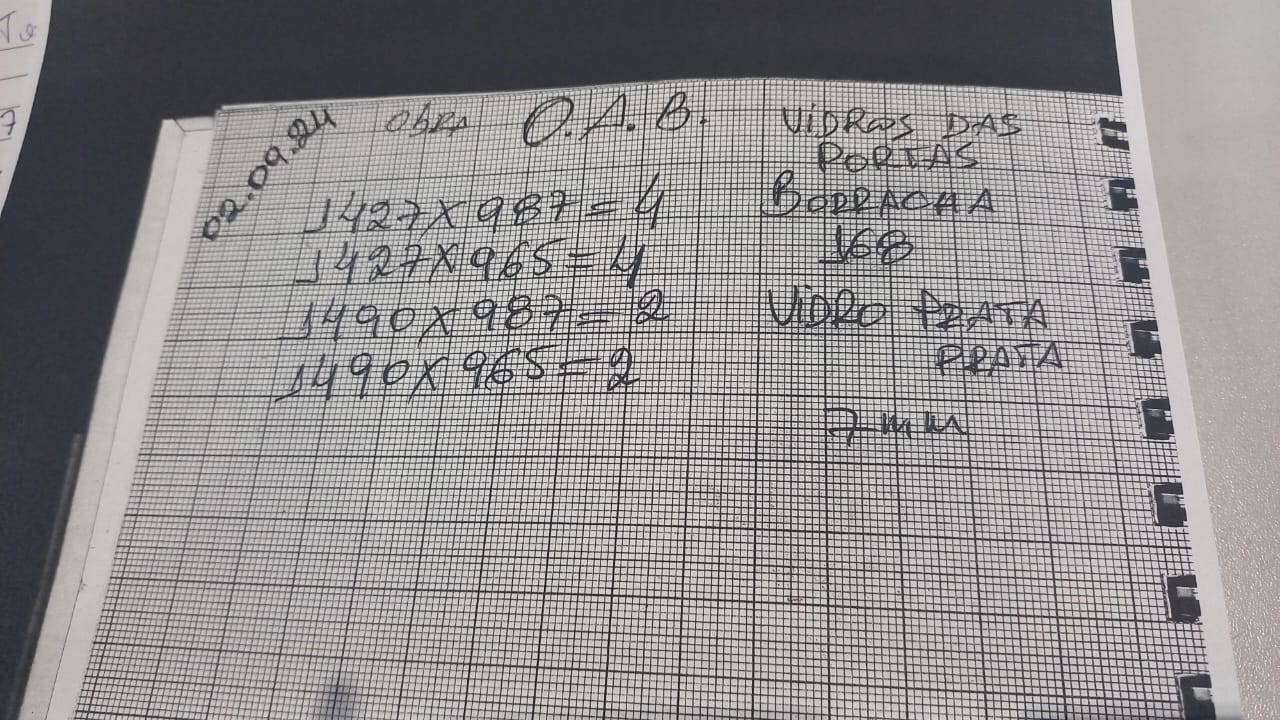 02.09.24
Obra O.A.B.
1427X987=4
1427X965=4
1490X987=2
1490X965=2
VIDROS DAS
PORTAS
BORRACHA
168
VIDRO PRATA
PRATA
7mm
7